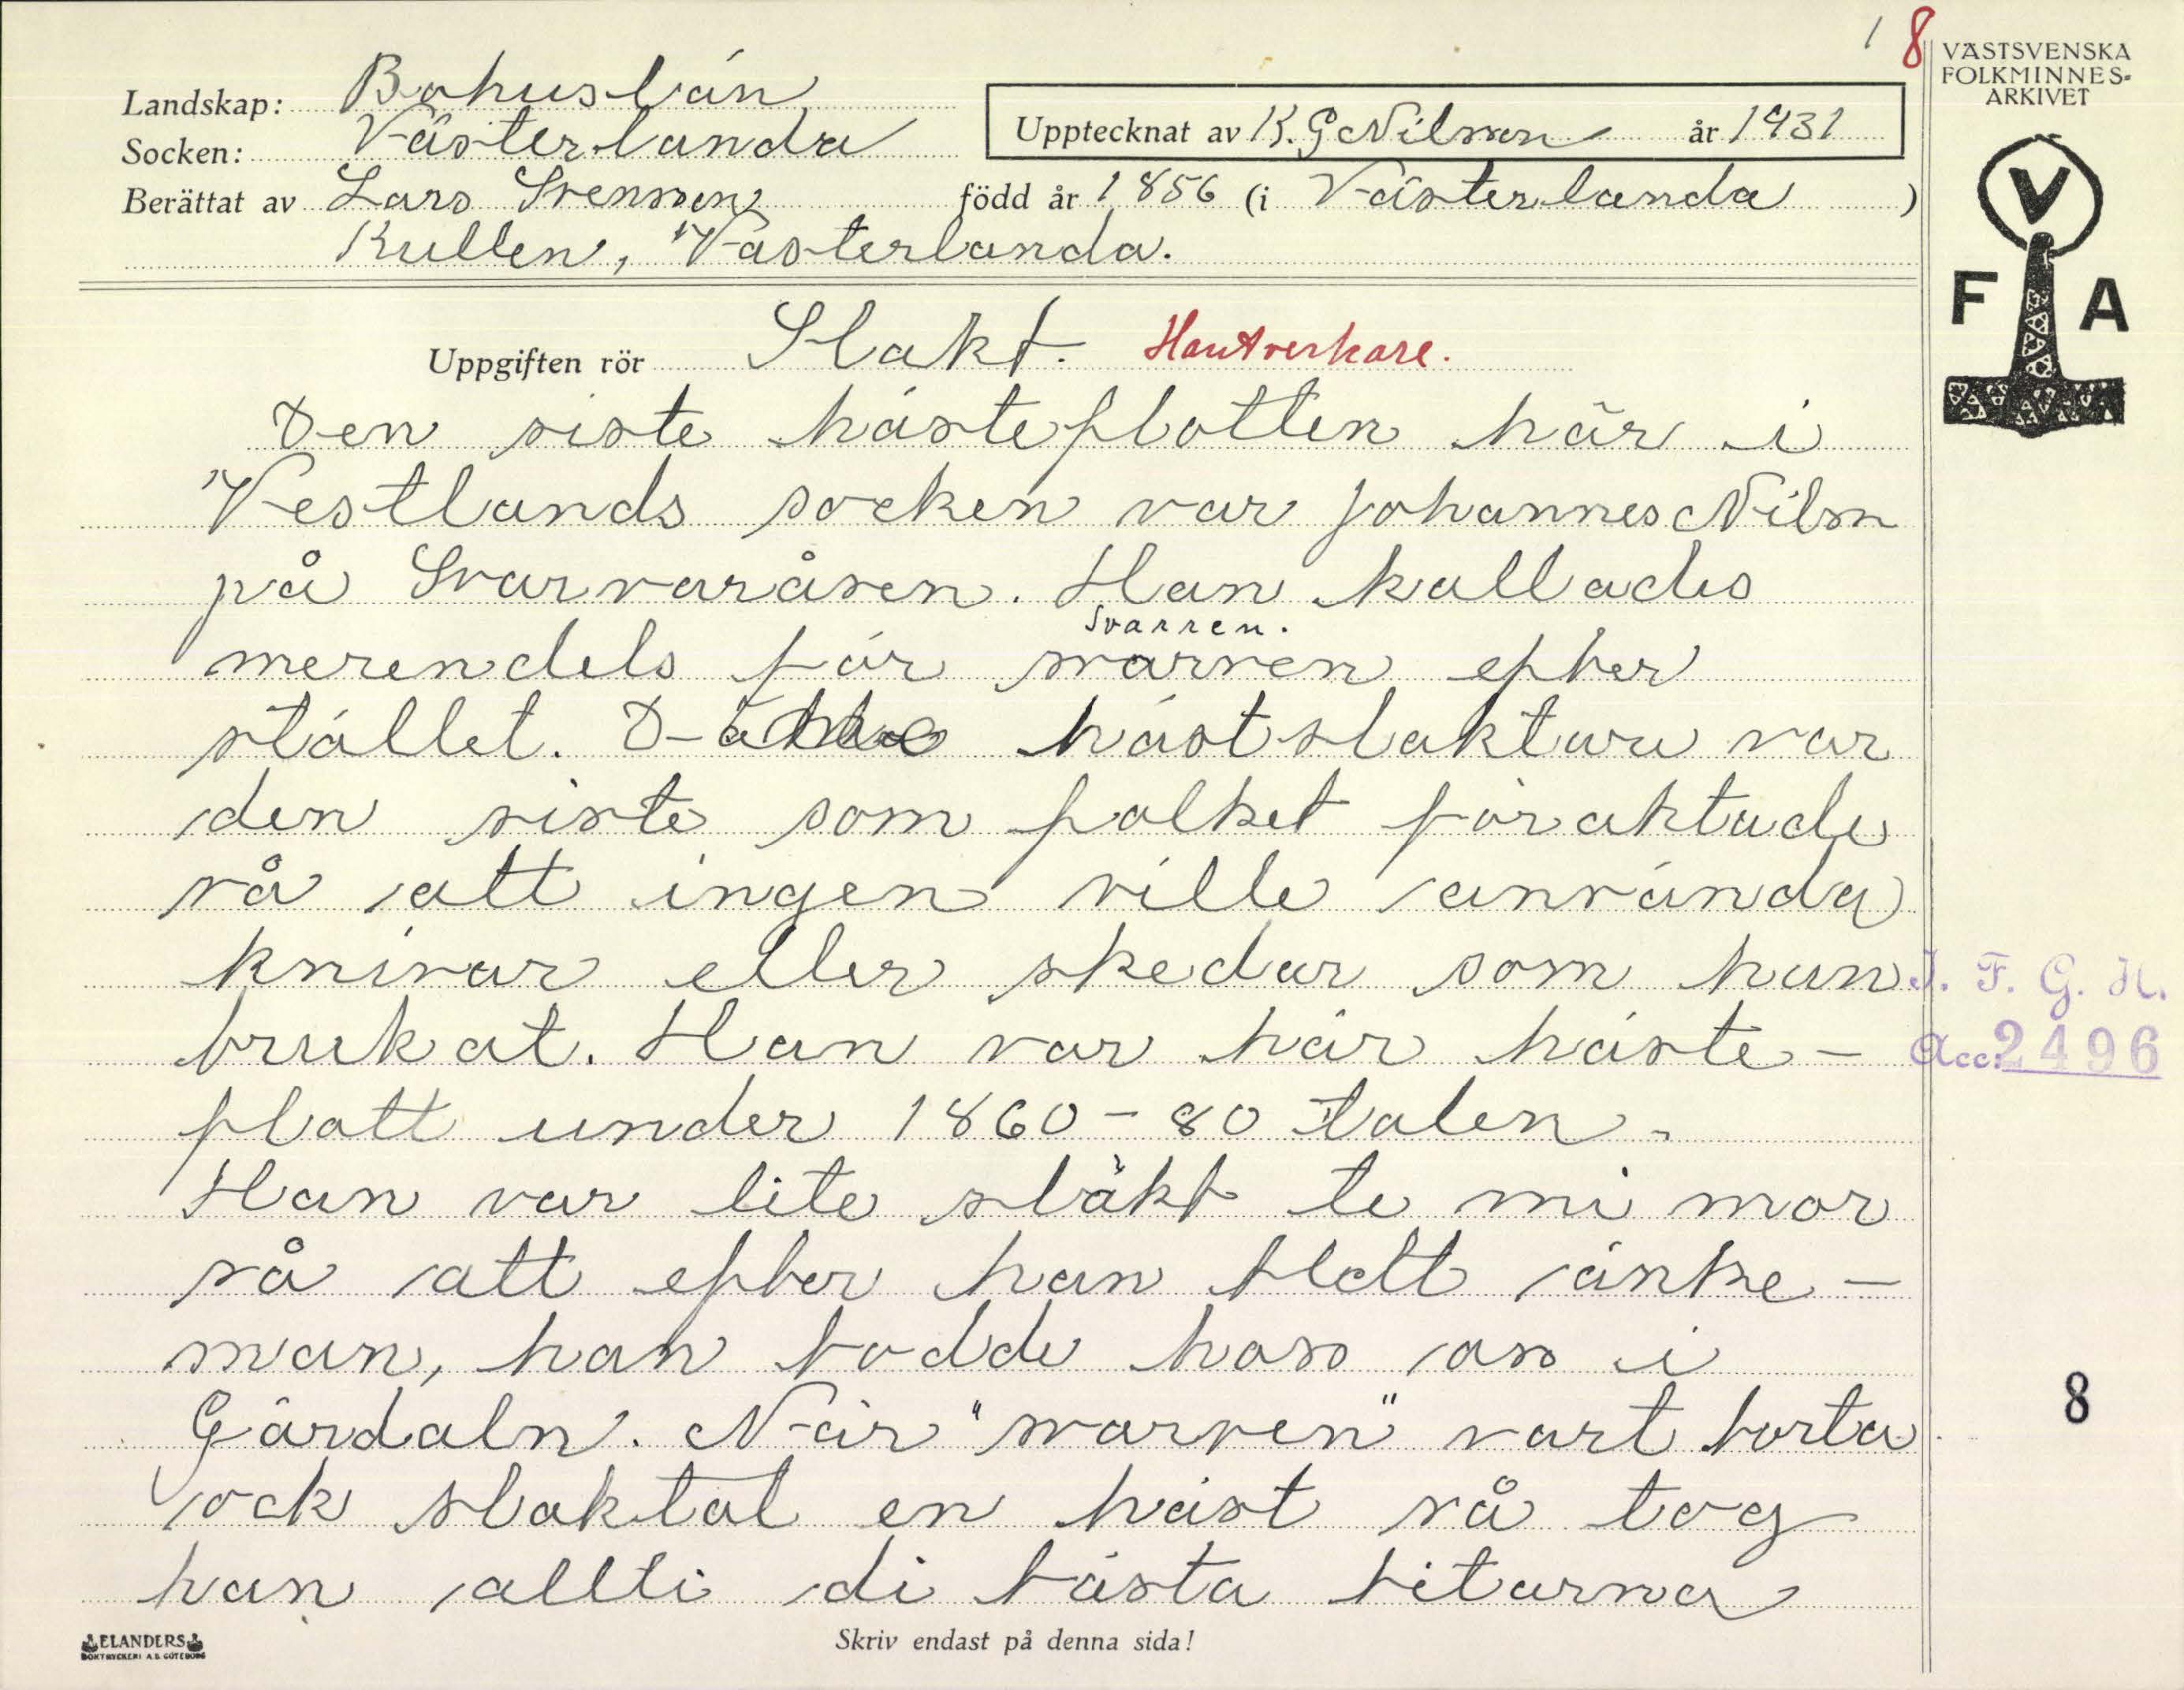 1 8
VÄSTSVENSKA
FOLKMINNES-
ARKIVET
Landskap: Bohuslän
Socken: Västerlanda
Upptecknat av K. G Nilsson år 1931
Berättat av Lars Svensson född år 1856 (i Västerlanda )
Kullen, Västerlanda.
V
F A
Uppgiften rör Slakt. Hantverkare.
Den siste hästeflotten här i
Vestlands socken var Johannes Nilsn
på Svarvaråsen. Han kallades
Svarren.
merendels för svarven efter
stället. hästslaktare var
den siste som folket föraktade
så att ingen ville använda
knivar eller skedar som han
brukat. Han var här häste-
flott under 1860-80 talen.
Han var lite släkt te mi mor
så att efter han blett änke-
man, han bodde hoss oss i
Gärdaln. När "svarven" vart borta
ock slaktat en häst så tog
han allti di bästa bitarna
I. F. G. H.
Acc: 2496
8
ELANDERS
BOKTRYCKERI A.B. GÖTEBORG
Skriv endast på denna sida!